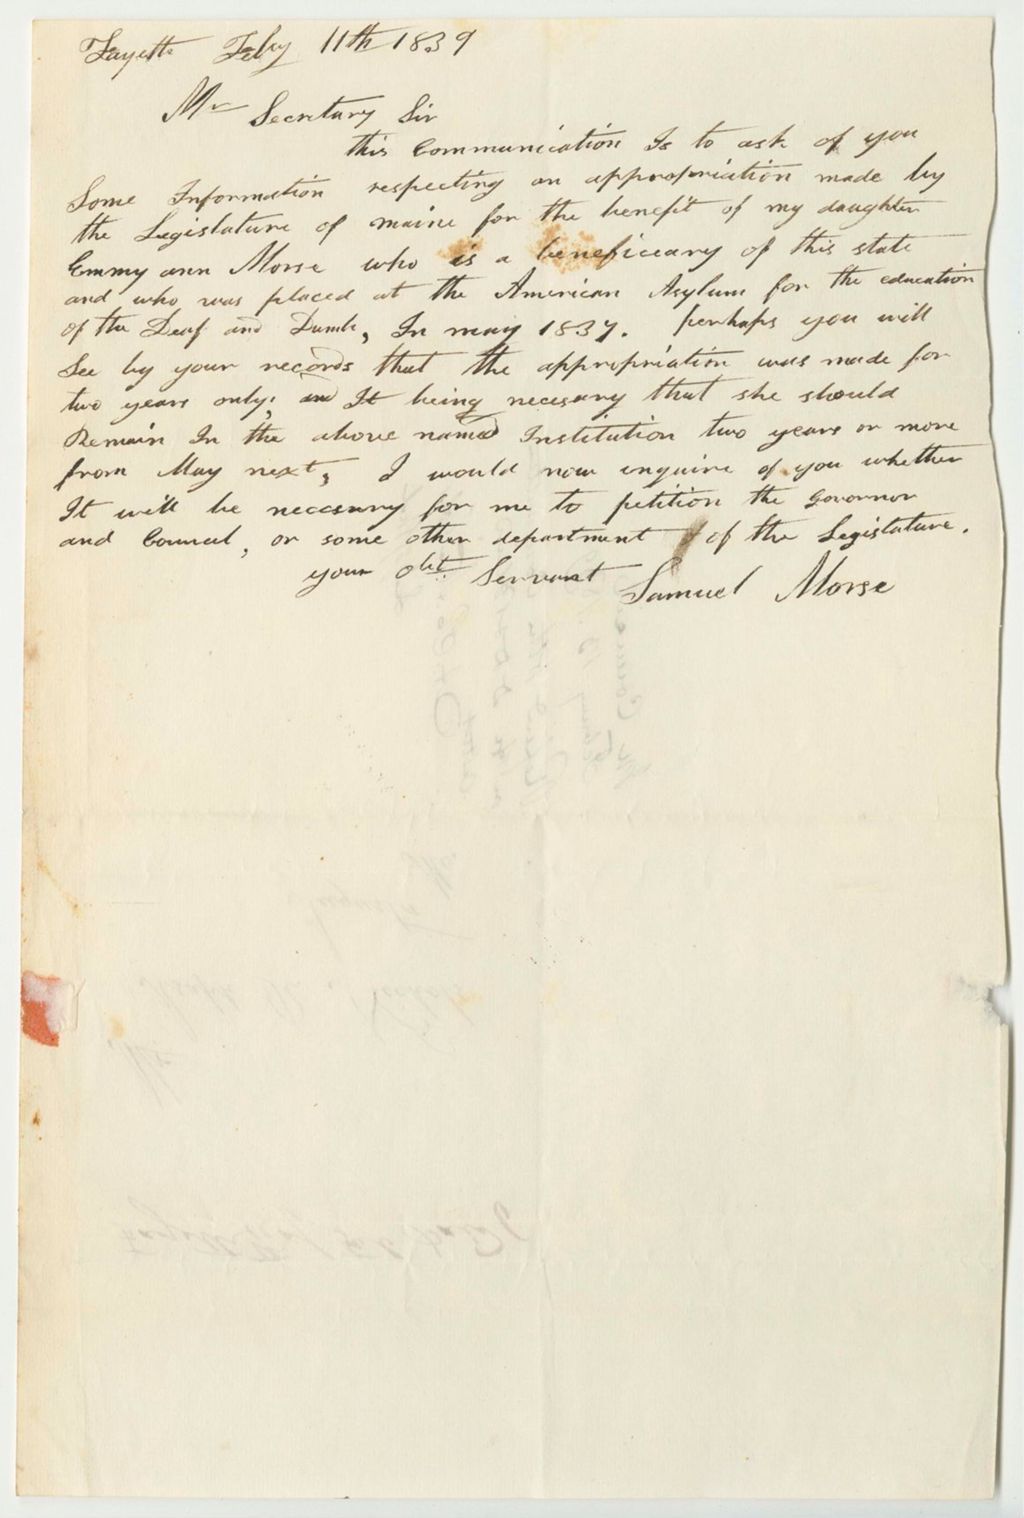 Fayette Feby 11th 1839
Mr Secretary Sir
this Communication Is to ask of you
Some Information respecting an appropriation made by
the Legislature of maine for the benefit of my daughter
Emmy ann Morse who is a beneficeary of this state
and who was placed at the American Asylum for the education
of the Deaf and Dumb, In may 1837. perhaps you will
See by your records that the appropriation was made for
two years only; and It being necesary that she should
Remain In the above named Institution two years or more
from May next, I would now inquire of you whether
It will be necesary for me to petition the Governor
and Council, or some other department of the Legislature.
your obt Servant Samuel Morse